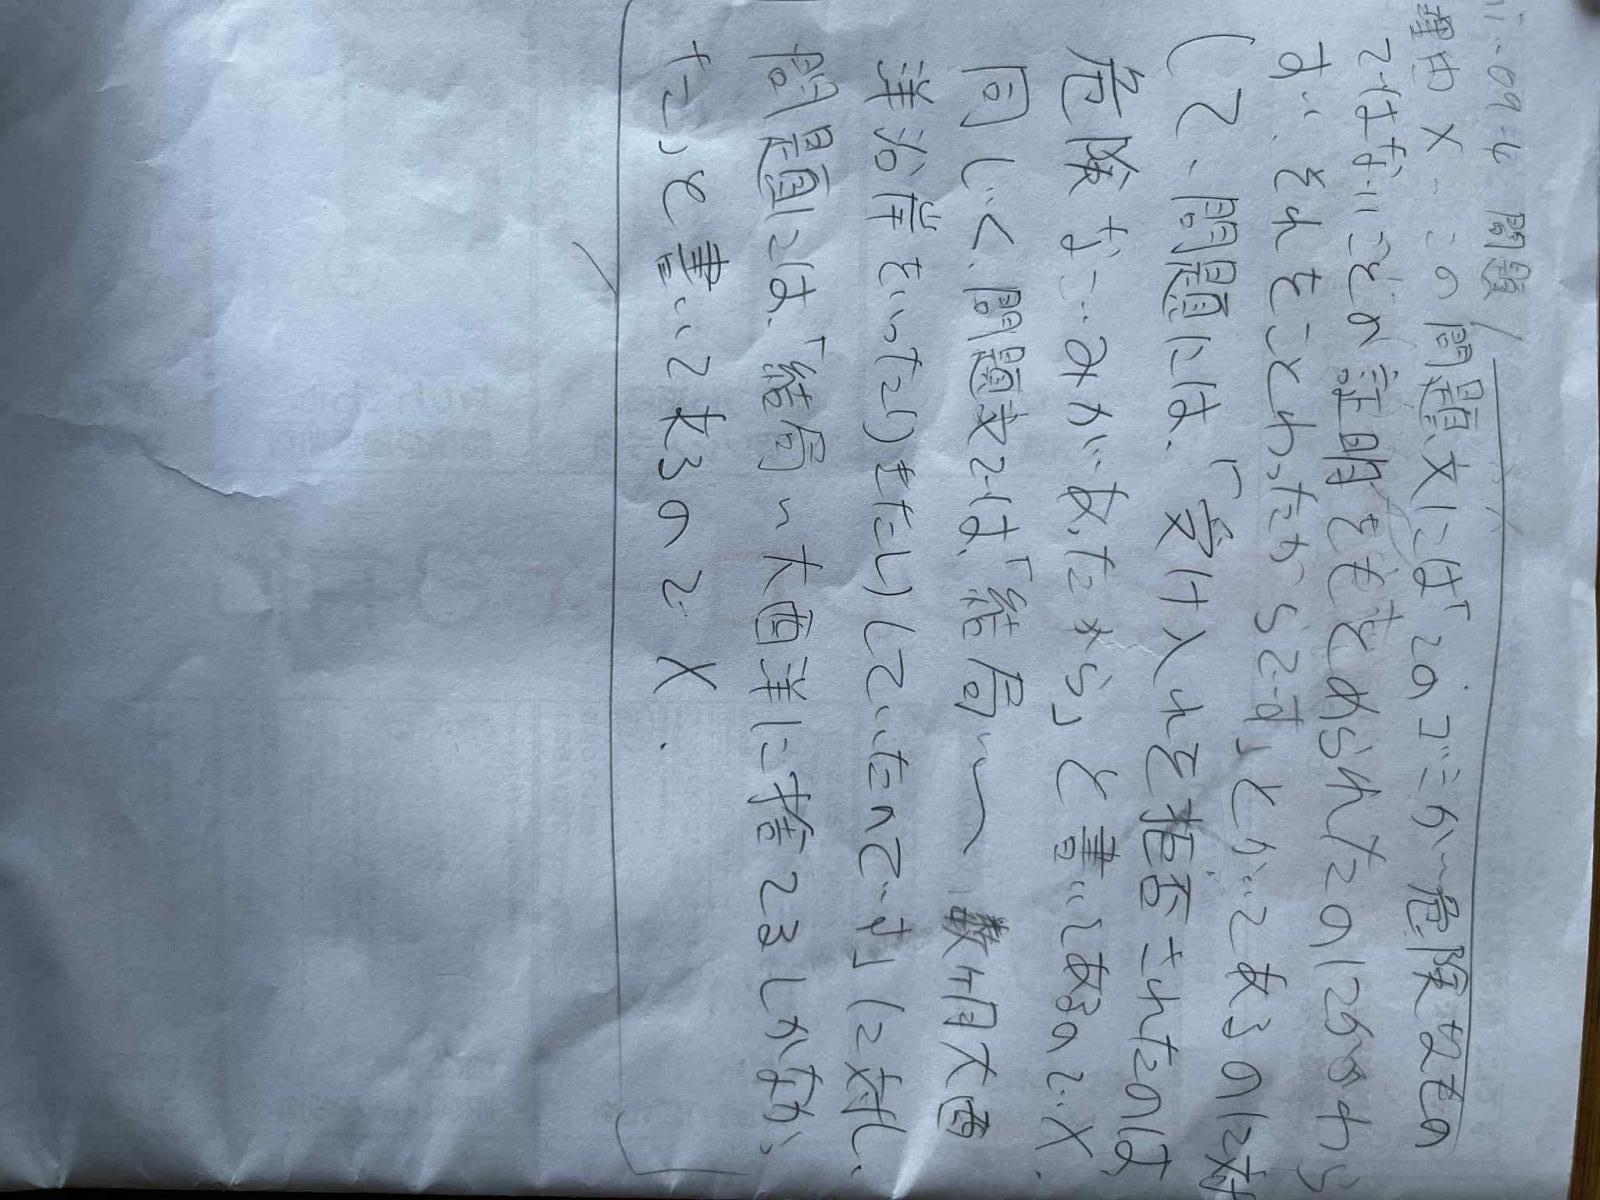 問題
理由X. この問題文には「このゴミが危険なもの
ではないことの証明をもとめられたのにかかわら
ず、それをことわったからです」とかいてあるのに対
して、問題には、「受け入れを拒否されたのは
危険なごみがあったから」と書いてあるのでX.
同じく、問題文では、「結局〜数ヶ月大西
洋沿岸をいったりきたりしていたんです」に対し、
問題では、「結局、大西洋に捨てるしかなかっ
た」と書いてあるのでX.